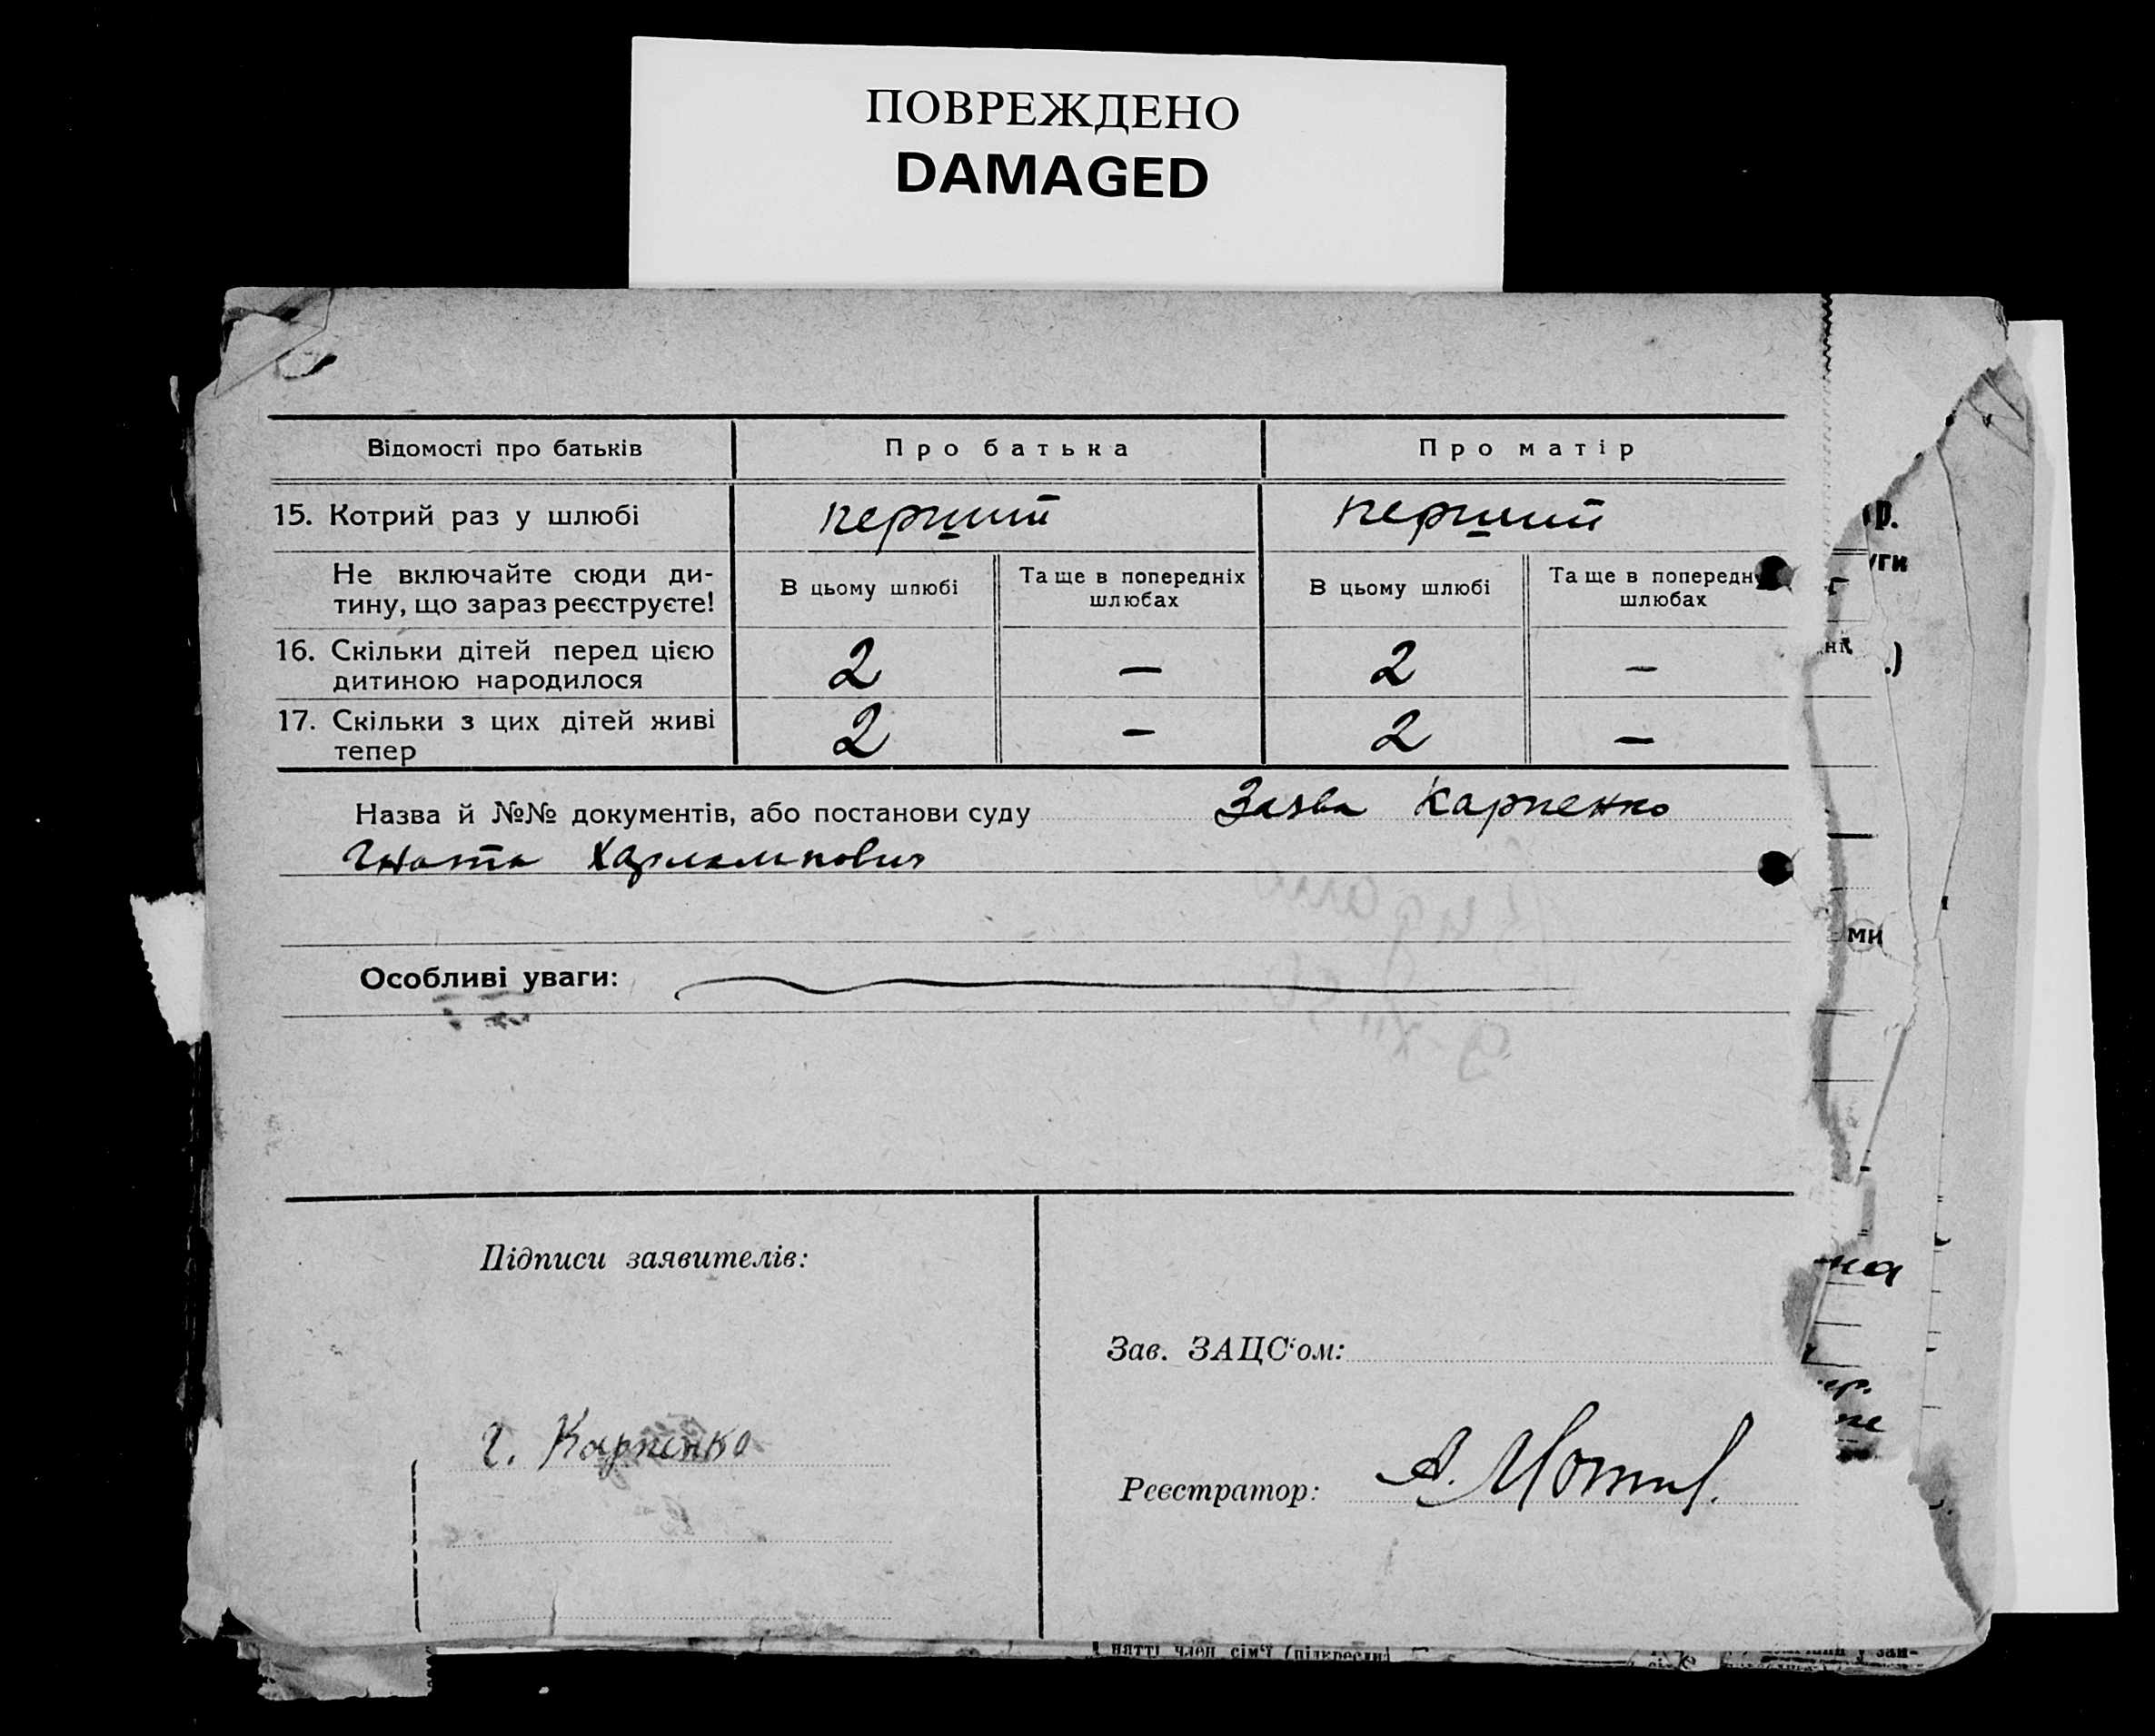 ПОВРЕЖДЕНО
DAMAGED
Відомості про батьків
Про батька
Про матір
15. Котрий раз у шлюбі
перший
перший
Не включайте сюди ди-
тину, що зараз реєструєте!
В цьому шлюбі
Та ще в попередніх
шлюбах
В цьому шлюбі
Та ще в попередн
шлюбах
16. Скільки дітей перед цією
дитиною народилося
2
—
2
—
17. Скільки з цих дітей живі
тепер
2
—
2
—
Назва й №№ документів, або постанови суду Заява Карпенко
Гната Харлампович
Особливі уваги:
Підписи заявителів:
Г. Карпенко
Зав. ЗАЦС‘ом:
Реєстратор:
р.
уги
.)
ми
на
нятті член сім‘ї (підкресли)